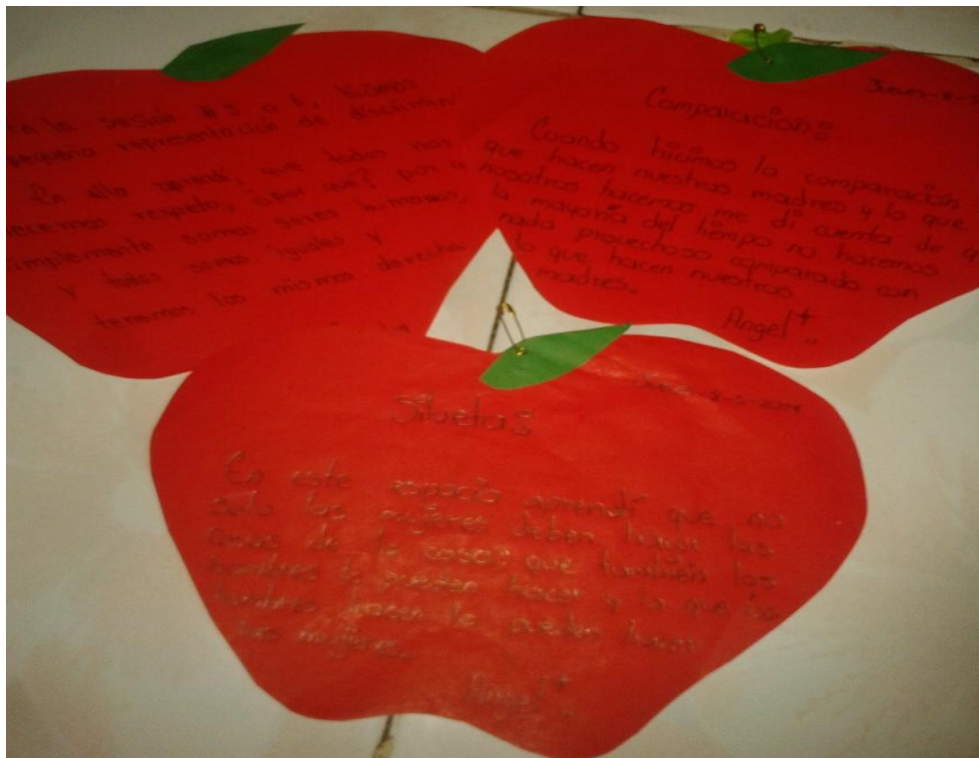 En la sesión # 5 o 6, hicimos
pequeña representación de discrimin
En ella aprendí que todos mer
ecemos respeto, ¿por qué? por q
implemente somos seres humanos,
y todos somos iguales y
tenemos los mismos derecho
Jueves-8-5
Comparación:
Cuando hicimos la comparación
que hacen nuestras madres y lo que
nosotros hacemos me di cuenta de q
la mayoría del tiempo no hacemos
nada provechoso comparado con
lo que hacen nuestras
madres.
Angel
Jueves-8-5-2014
Siluetas:
En este espacio aprendí que no
solo las mujeres deben hacer las
cosas de la casa, que también los
hombres lo pueden hacer y lo que los
hombres hacen lo pueden hacer
las mujeres.
Angel